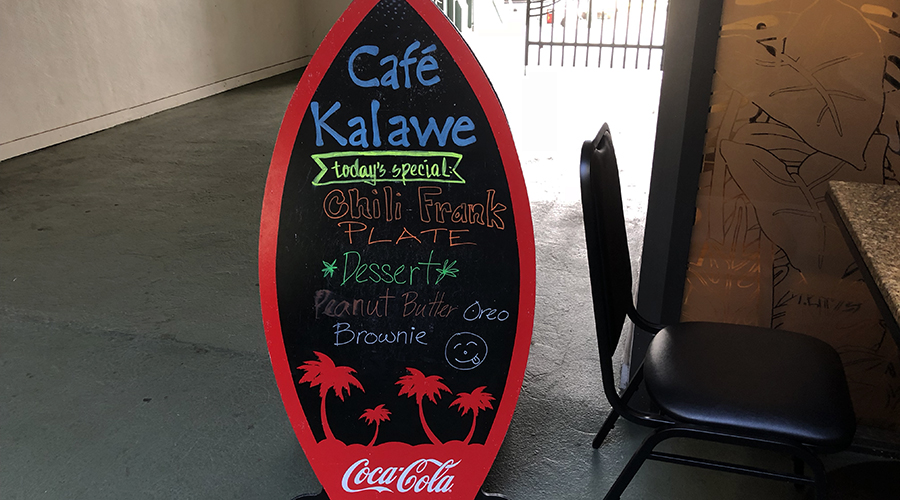 Café
Kalawe
today's special:
Chili Frank
PLATE
Dessert
Peanut Butter Oreo
Brownie
Coca-Cola